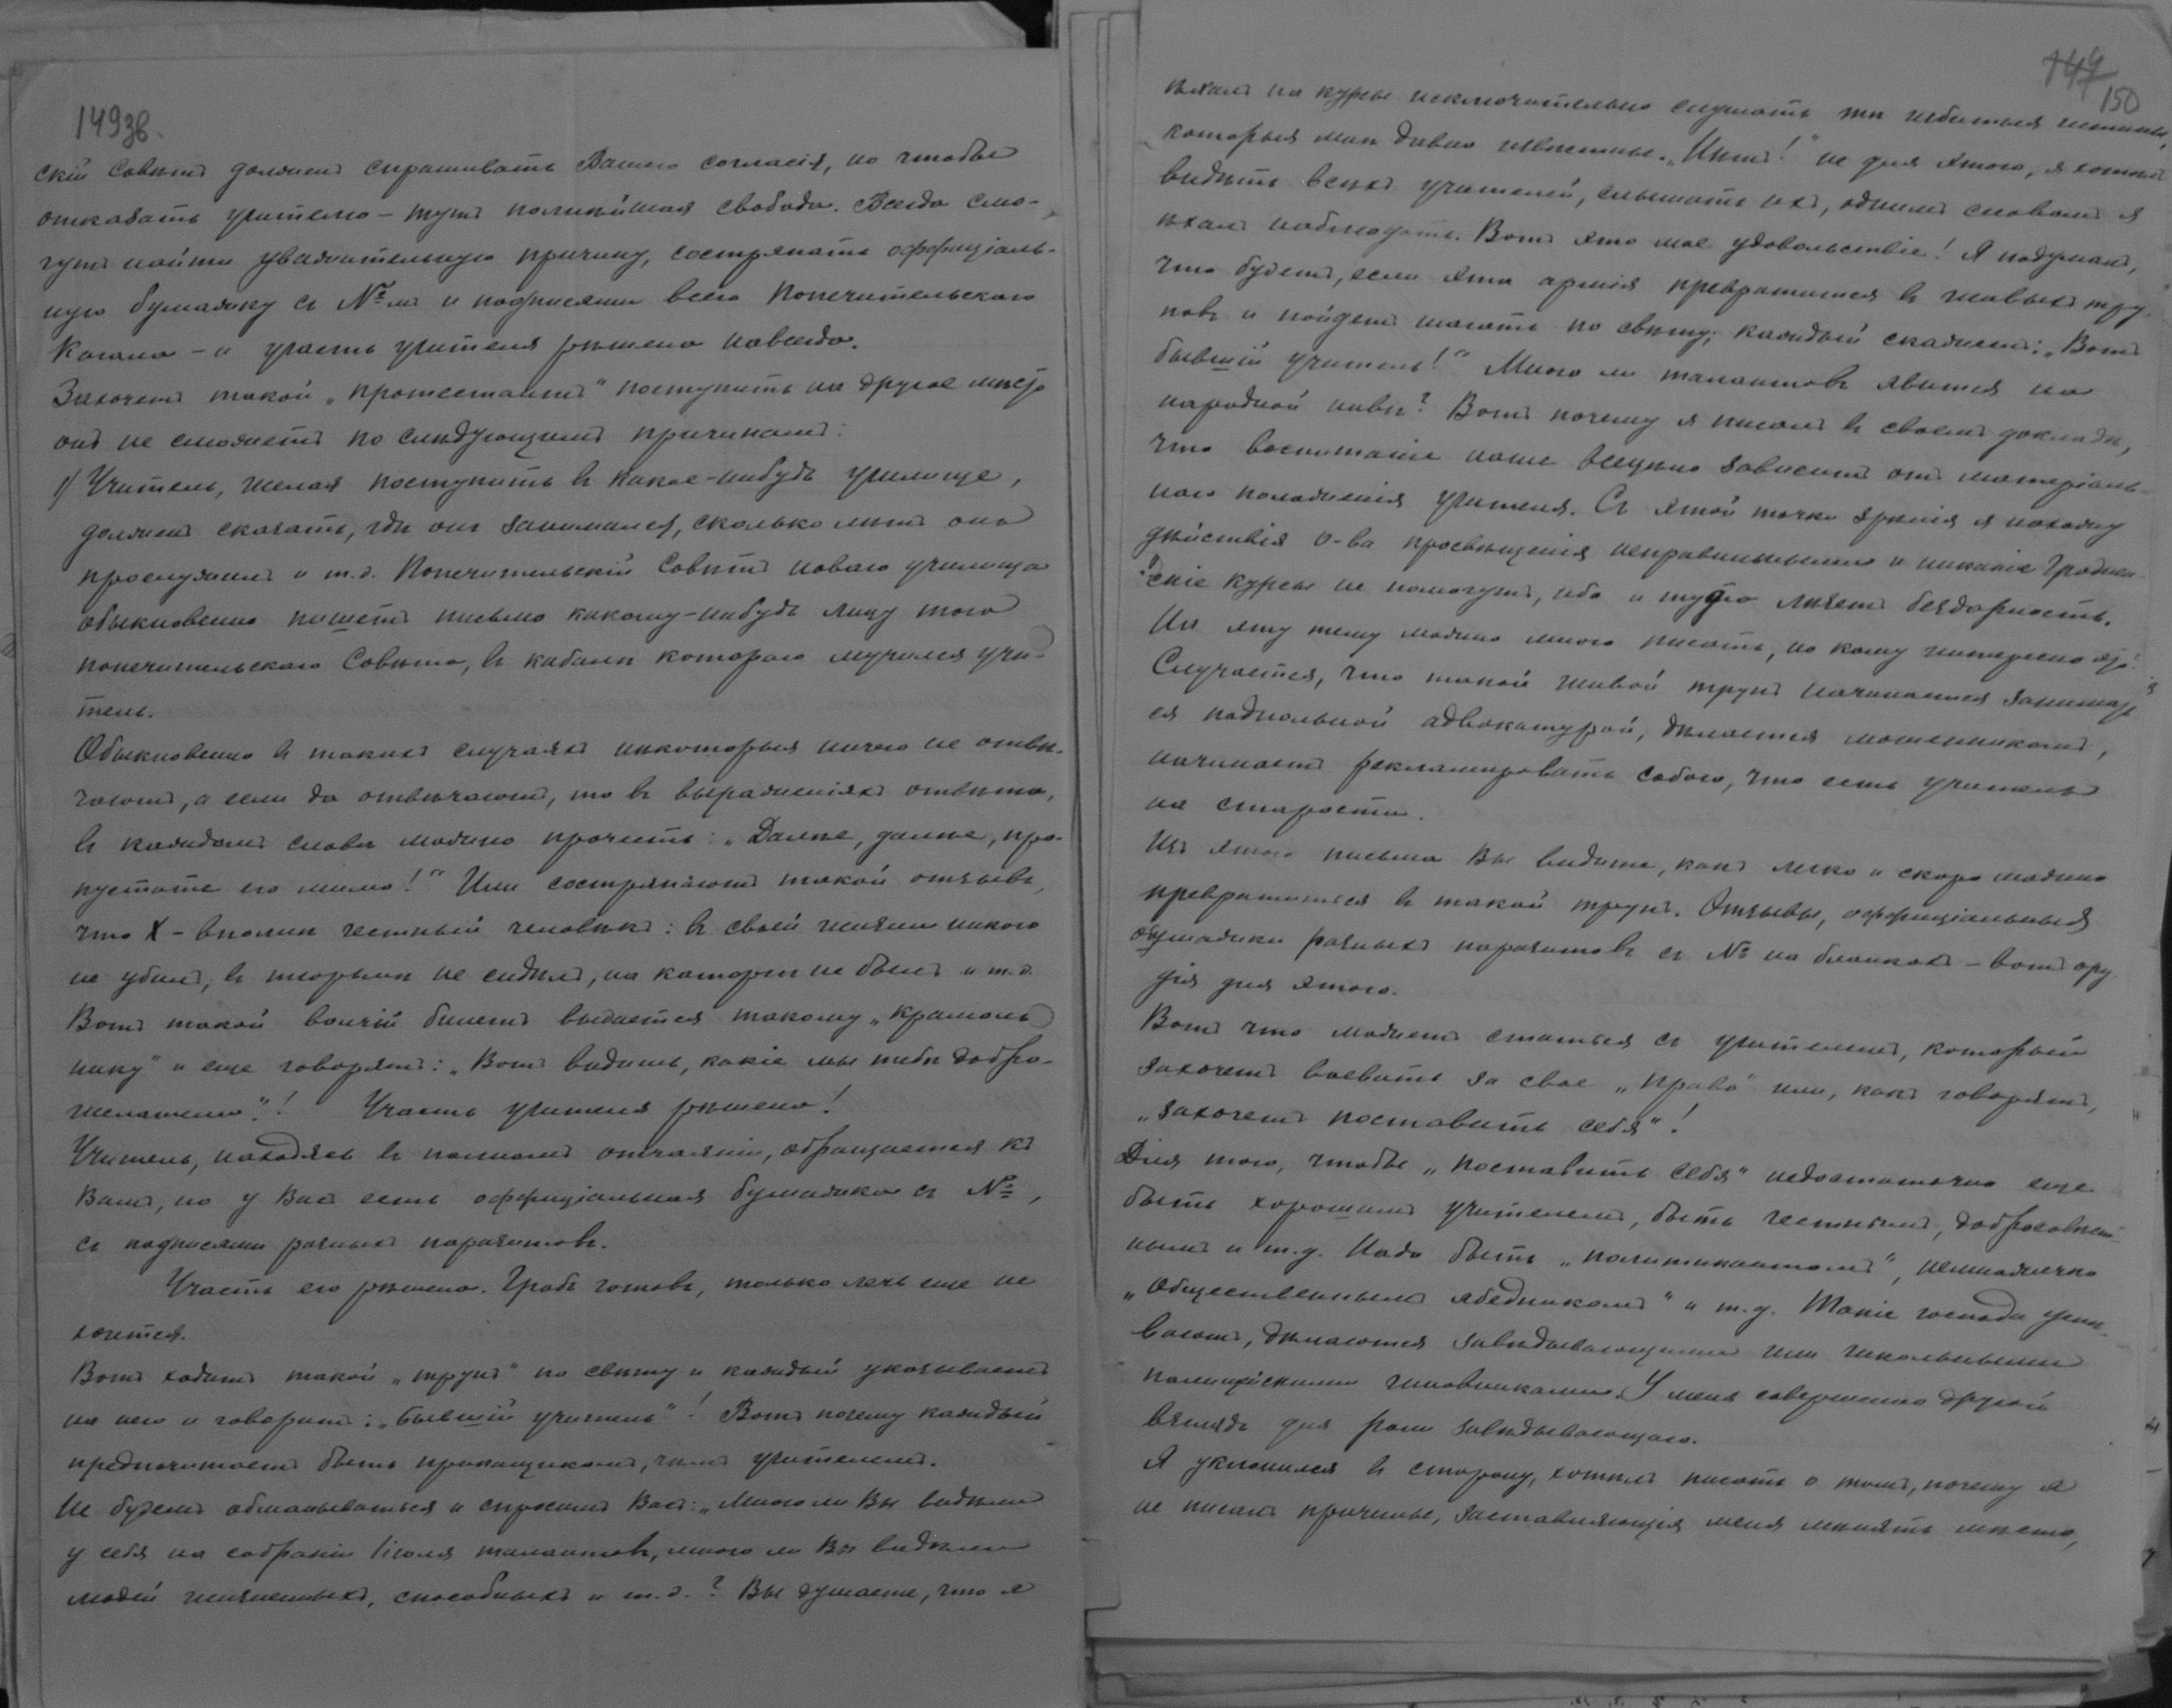 149зв.
скій Совѣтъ долженъ спрашивать Вашего согласія, но чтобы
отказать учителю – тутъ полнѣйшая свобода. Всегда смо-
гутъ найти уважительную причину, состряпать оффиціаль-
ную бумажку съ №-мъ и подписями всего Попечительскаго
Кагала – и участь учителя рѣшена навсегда.
Захочетъ такой „протестантъ" поступить на другое мѣсто
онъ не сможетъ по слѣдующимъ причинамъ:
1/ Учитель, желая поступить въ какое-нибудь училище,
долженъ сказать, гдѣ онъ занимался, сколько лѣтъ онъ
прослужилъ и т.д. Попечительскій Совѣтъ новаго училища
обыкновенно пишетъ письмо какому-нибудь лицу того
попечительскаго Совѣта, въ кабалѣ котораго мучился учи-
тель.
Обыкновенно въ такихъ случаяхъ нѣкоторыя ничего не отвѣ-
чаютъ, а если да отвѣчаютъ, то въ выраженіяхъ отвѣта,
въ каждомъ словѣ можно прочесть: „Далѣе, далѣе, про-
пустите его мимо!" Или состряпаютъ такой отзывъ,
что Х – вполнѣ честный человѣкъ: въ своей жизни никого
не убилъ, въ тюрьмѣ не сидѣлъ, на каторгѣ не былъ и т.д.
Вотъ такой волчій билетъ выдается такому „крамоль
нику" и еще говорятъ: „Вотъ видишь, какіе мы тебѣ добро-
желатели"! Участь учителя рѣшена!
Учитель, находясь въ полномъ отчаяніи, обращается къ
Вамъ, но у Васъ есть оффиціальная бумажка съ №,
съ подписями разныхъ паразитовъ.
Участь его рѣшена. Гробъ готовъ, только лечь еще не
хочется.
Вотъ ходитъ такой „трупъ" по свѣту и каждый указываетъ
на него и говоритъ: „бывшій учитель"! Вотъ почему каждый
предпочитаетъ быть приказщикомъ, чѣмъ учителемъ.
Не будемъ обманываться и спросимъ Васъ: „Много ли Вы видѣли
у себя на собраніи 1 іюля талантовъ, много ли Вы видѣли
людей жизненныхъ, способныхъ и т.д.? Вы думаете, что я
149
150
ѣхалъ на курсы исключительно слушать тѣ избитыя истины,
которыя мнѣ давно извѣстны. „Нѣтъ!" не для этого, я хотѣлъ
видѣть всѣхъ учителей, слышать ихъ, однимъ словомъ я
ѣхалъ наблюдать. Вотъ это мое удовольствіе! Я подумалъ,
что будетъ, если эта армія превратится въ живыхъ тру-
повъ и пойдетъ шагать по свѣту; каждый скажетъ: „Вотъ
бывшій учитель!" Много ли талантовъ явится на
народной нивѣ? Вотъ почему я писалъ въ своемъ докладѣ,
что воспитаніе наше всецѣло зависитъ отъ матеріаль-
наго положенія учителя. Съ этой точки зрѣнія я нахожу
дѣйствія О-ва просвѣщенія неправильными и никакіе Гроднен-
скіе курсы не помогутъ, ибо и туда лѣзетъ бездарность.
На эту тему можно много писать, но кому интересно это?
Случается, что такой живой трупъ начинаетъ занимать
ся подпольной адвокатурой, дѣлается мошенникомъ,
начинаетъ рекламировать собою, что есть учитель
на старости.
Изъ этого письма Вы видите, какъ легко и скоро можно
превратиться въ такой трупъ. Отзывы, оффиціальныя
бумажки разныхъ паразитовъ съ № на бланкахъ – вотъ ору
дія для этого.
Вотъ что можетъ статься съ учителемъ, который
захочетъ воевать за свое „право" или, какъ говорятъ,
„захочетъ поставить себя"!
Для того, чтобы „поставить себя" недостаточно еще
быть хорошимъ учителемъ, быть честнымъ, добросовѣст-
нымъ и т.д. Надо быть „политикантомъ", немножечко
„общественнымъ ябедникомъ" и т.д. Такіе господа успѣ-
ваютъ, дѣлаются завѣдывающими или школьными
полицейскими чиновниками. У меня совершенно другой
взглядъ для роли завѣдывающаго.
Я уклонился въ сторону, хотѣлъ писать о томъ, почему я
не писалъ причины, заставляющія меня мѣнять мѣсто,